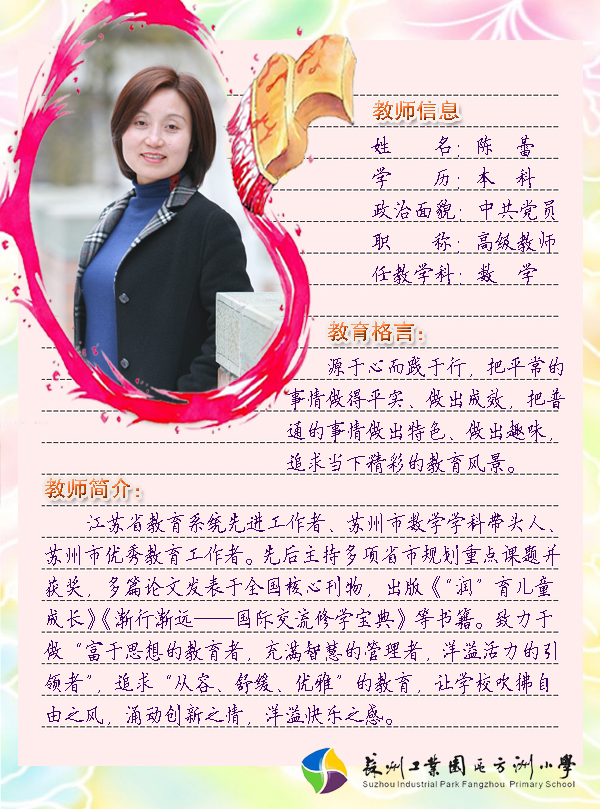 教师信息
姓　　名：陈　蕾
学　　历：本　科
政治面貌：中共党员
职　　称：高级教师
任教学科：数　学
教育格言：
源于心而践于行，把平常的
事情做得平实、做出成效，把普
通的事情做出特色、做出趣味，
追求当下精彩的教育风景。
教师简介：
江苏省教育系统先进工作者、苏州市数学学科带头人、
苏州市优秀教育工作者。先后主持多项省市规划重点课题并
获奖，多篇论文发表于全国核心刊物，出版《“润”育儿童
成长》《渐行渐远——国际交流修学宝典》等书籍。致力于
做“富于思想的教育者，充满智慧的管理者，洋溢活力的引
领者”，追求“从容、舒缓、优雅”的教育，让学校吹拂自
由之风，涌动创新之情，洋溢快乐之感。
苏州工业园区方洲小學
Suzhou Industrial Park Fangzhou Primary School